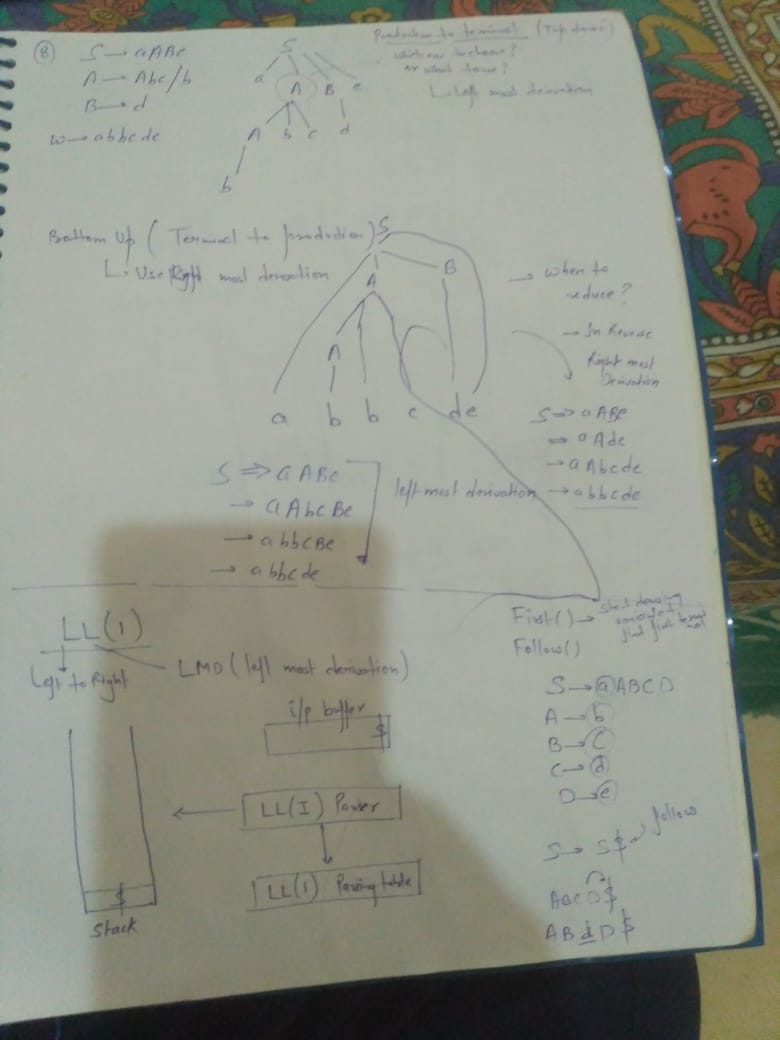 8
S → aABe
A → Abc/b
B → d
w → abbcde
S
a A B e
A b c d
b
Production to terminal (Top down)
which one to choose?
or what to use?
Left most derivation
Bottom Up ( Terminal to production)
Use Right most derivation
S
A B
A
a b b c d e
→ when to reduce?
→ In Reverse
Right most
Derivation
S ⇒ aABe
⇒ aAde
→ aAbcde
→ abbcde
S ⇒ aABe
→ aAbcBe
→ abbcBe
→ abbcde
left most derivation
LL(1)
Left to Right
LMD (left most derivation)
i/p buffer
$
LL(1) Parser
LL(1) Parsing table
$
Stack
First() →
find first
Follow()
S → aABCD
A → b
B → C
C → d
D → e
S → S$ follow
ABCD$
ABdD$